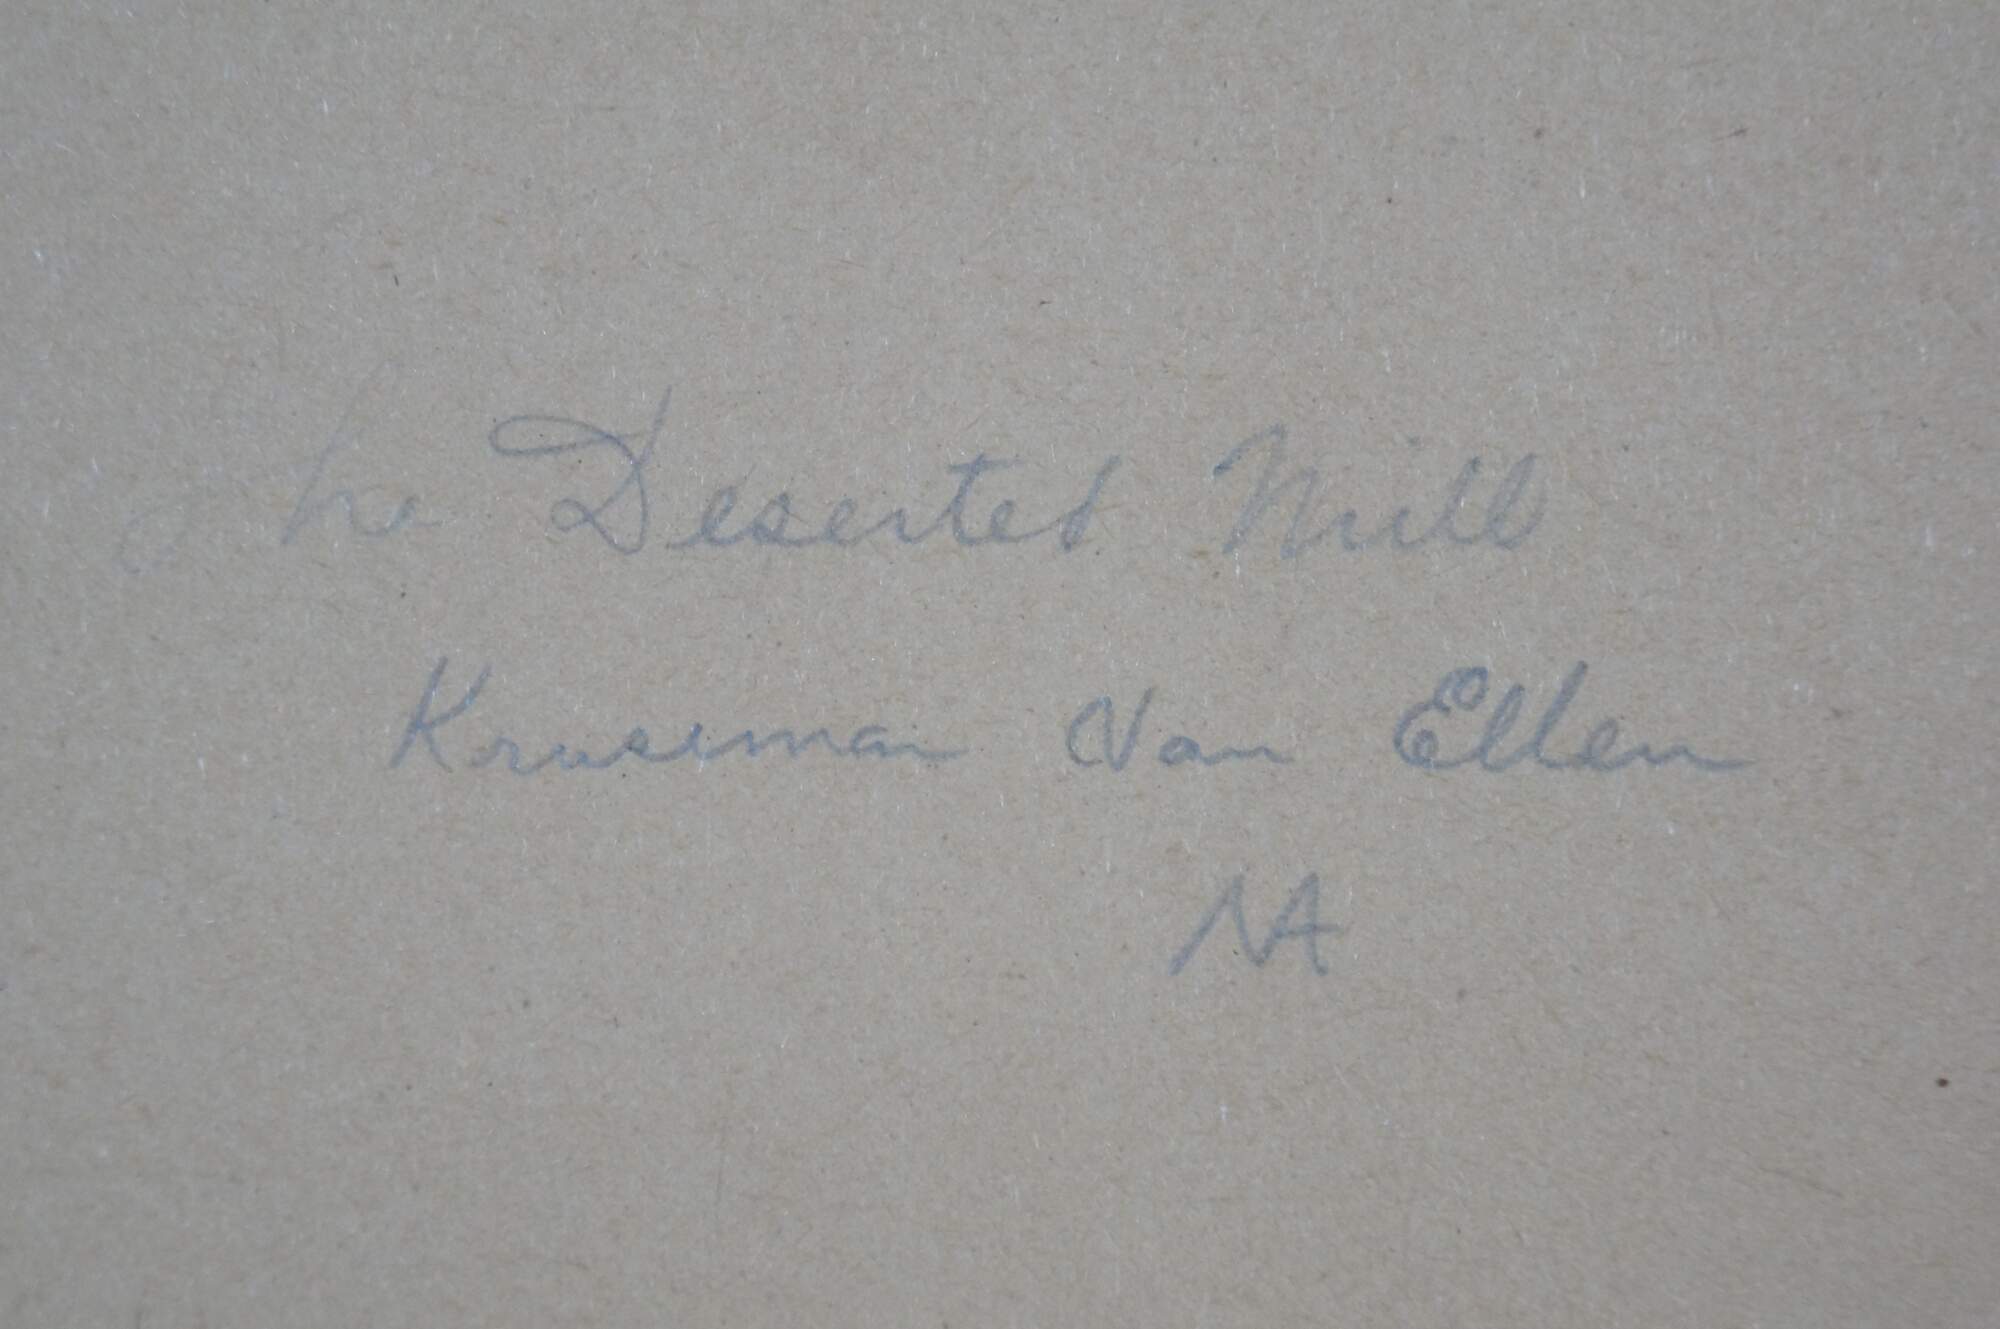 The Deserted Mill
Kruseman Van Ellen
NA